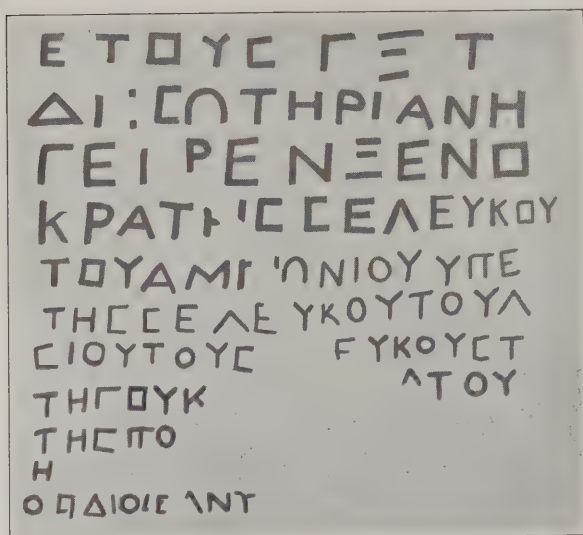 ΕΤΟΥΣ ΓΞΤ
ΔΙ:ΣΩΤΗΡΙΑΝΗ
ΓΕΙΡΕΝΞΕΝΟ
ΚΡΑΤΗΣΣΕΛΕΥΚΟΥ
ΤΟΥΑΜΜΩΝΙΟΥΥΠΕ
ΤΗΣΣΕΛΕΥΚΟΥΤΟΥΛ
ΣΙΟΥΤΟΥΣ ΕΥΚΟΥΣΤ
ΤΗΓΟΥΚ ΛΤΟΥ
ΤΗΣΠΟ
Η